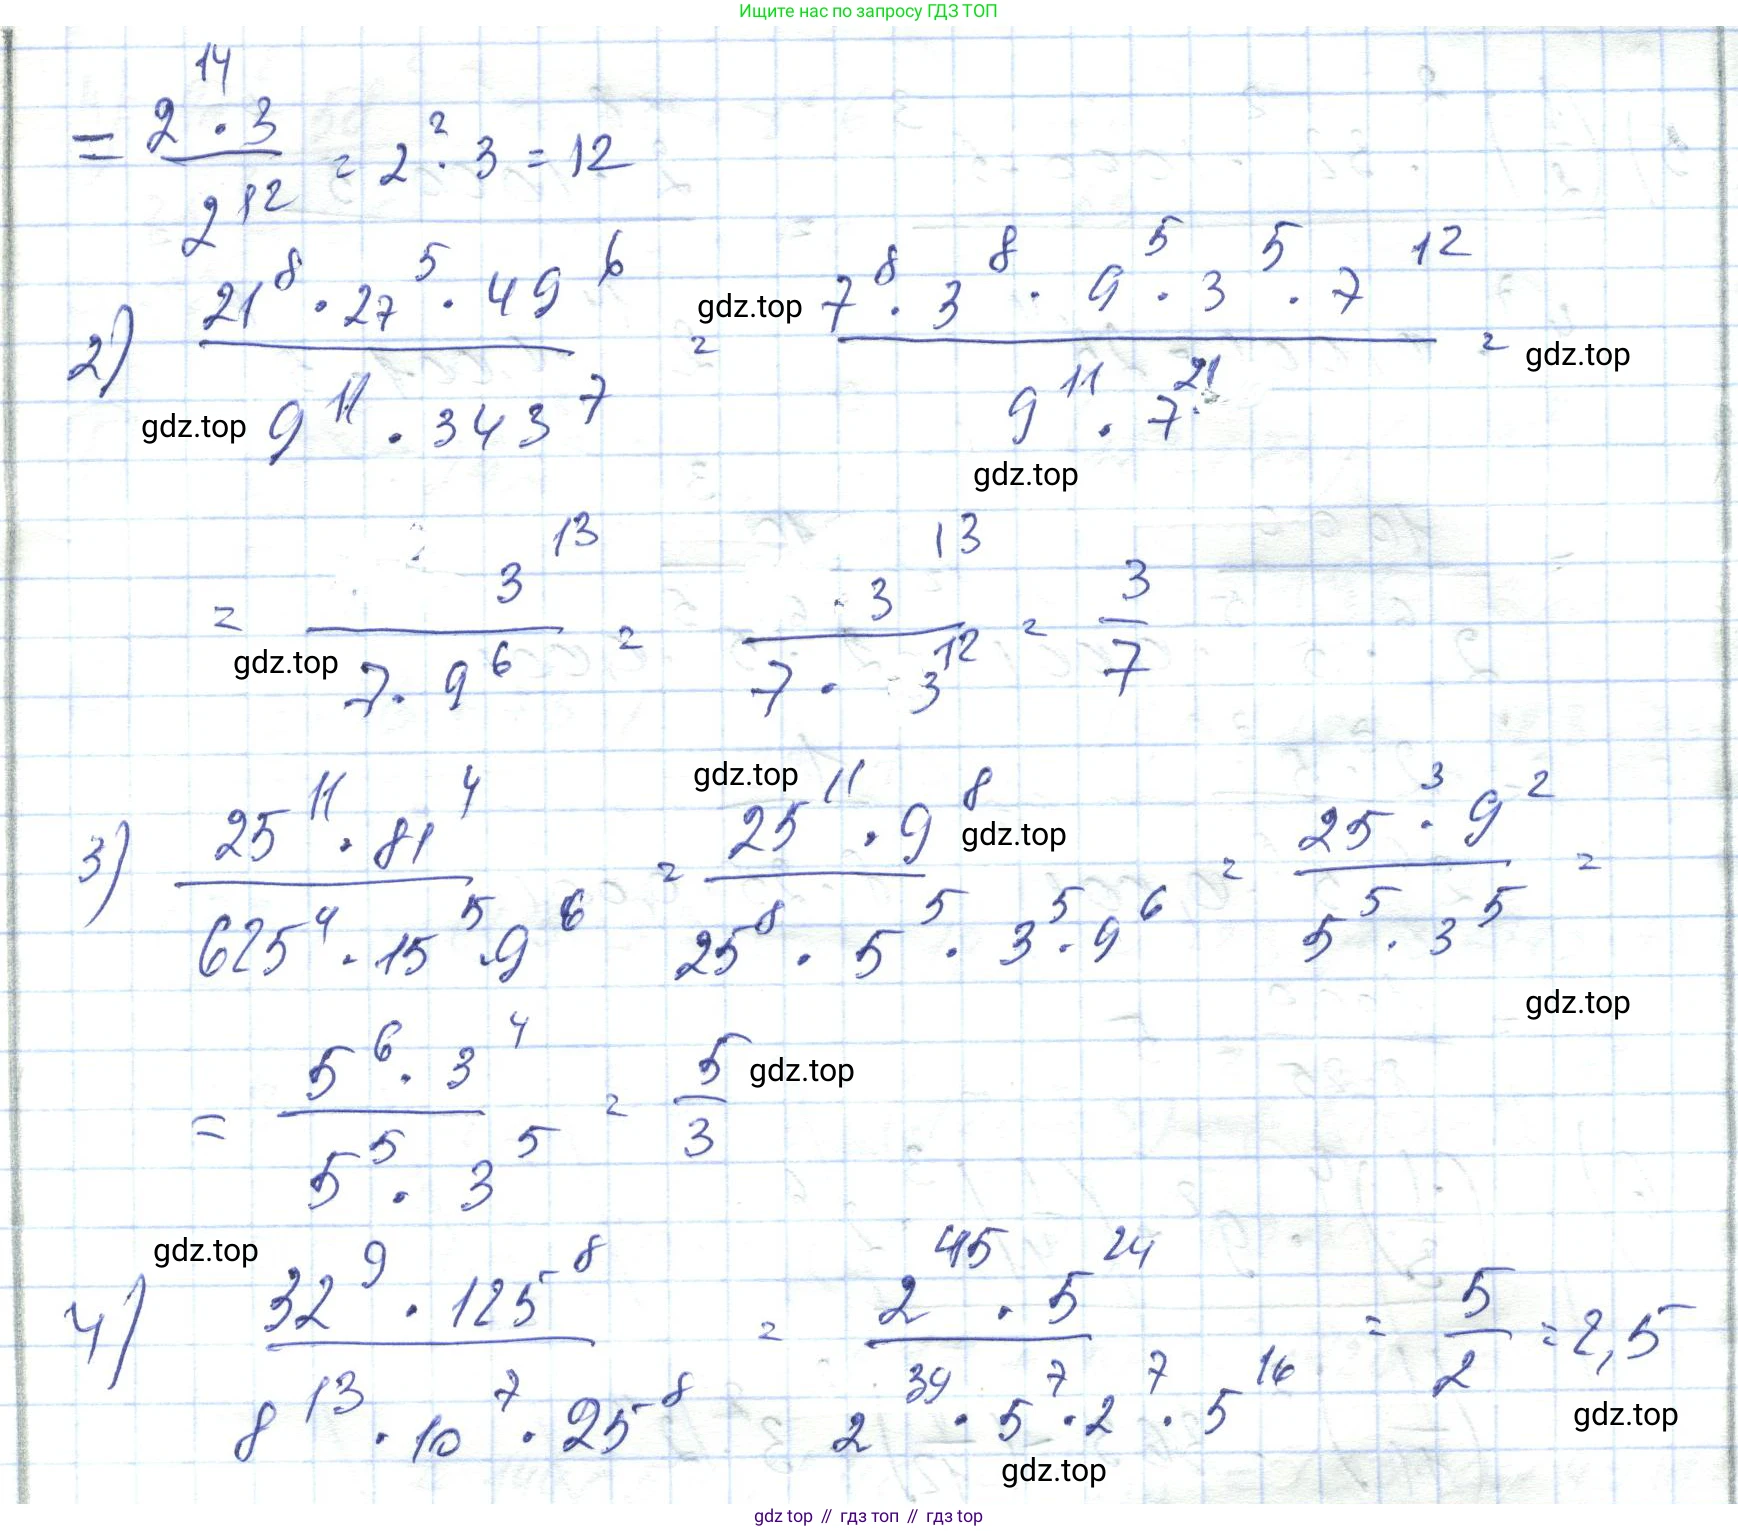 Ищите нас по запросу ГДЗ ТОП
= (2^14 · 3) / 2^12 = 2^2 · 3 = 12
2) (21^8 · 27^5 · 49^6) / (9^11 · 343^7) = gdz.top (7^8 · 3^8 · 9^5 · 3^5 · 7^12) / (9^11 · 7^21) = gdz.top
gdz.top
gdz.top
= 3^13 / (7 · 9^6) = 3^13 / (7 · 3^12) = 3/7
gdz.top
gdz.top
3) (25^11 · 81^4) / (625^4 · 15^5 · 9^6) = (25^11 · 9^8) / (25^8 · 5^5 · 3^5 · 9^6) = (25^3 · 9^2) / (5^5 · 3^5) =
gdz.top
gdz.top
= (5^6 · 3^4) / (5^5 · 3^5) = 5/3 gdz.top
gdz.top
4) (32^9 · 125^8) / (8^13 · 10^7 · 25^8) = (2^45 · 5^24) / (2^39 · 5^7 · 2^7 · 5^16) = 5/2 = 2,5
gdz.top
gdz.top
gdz top // гдз топ // gdz top